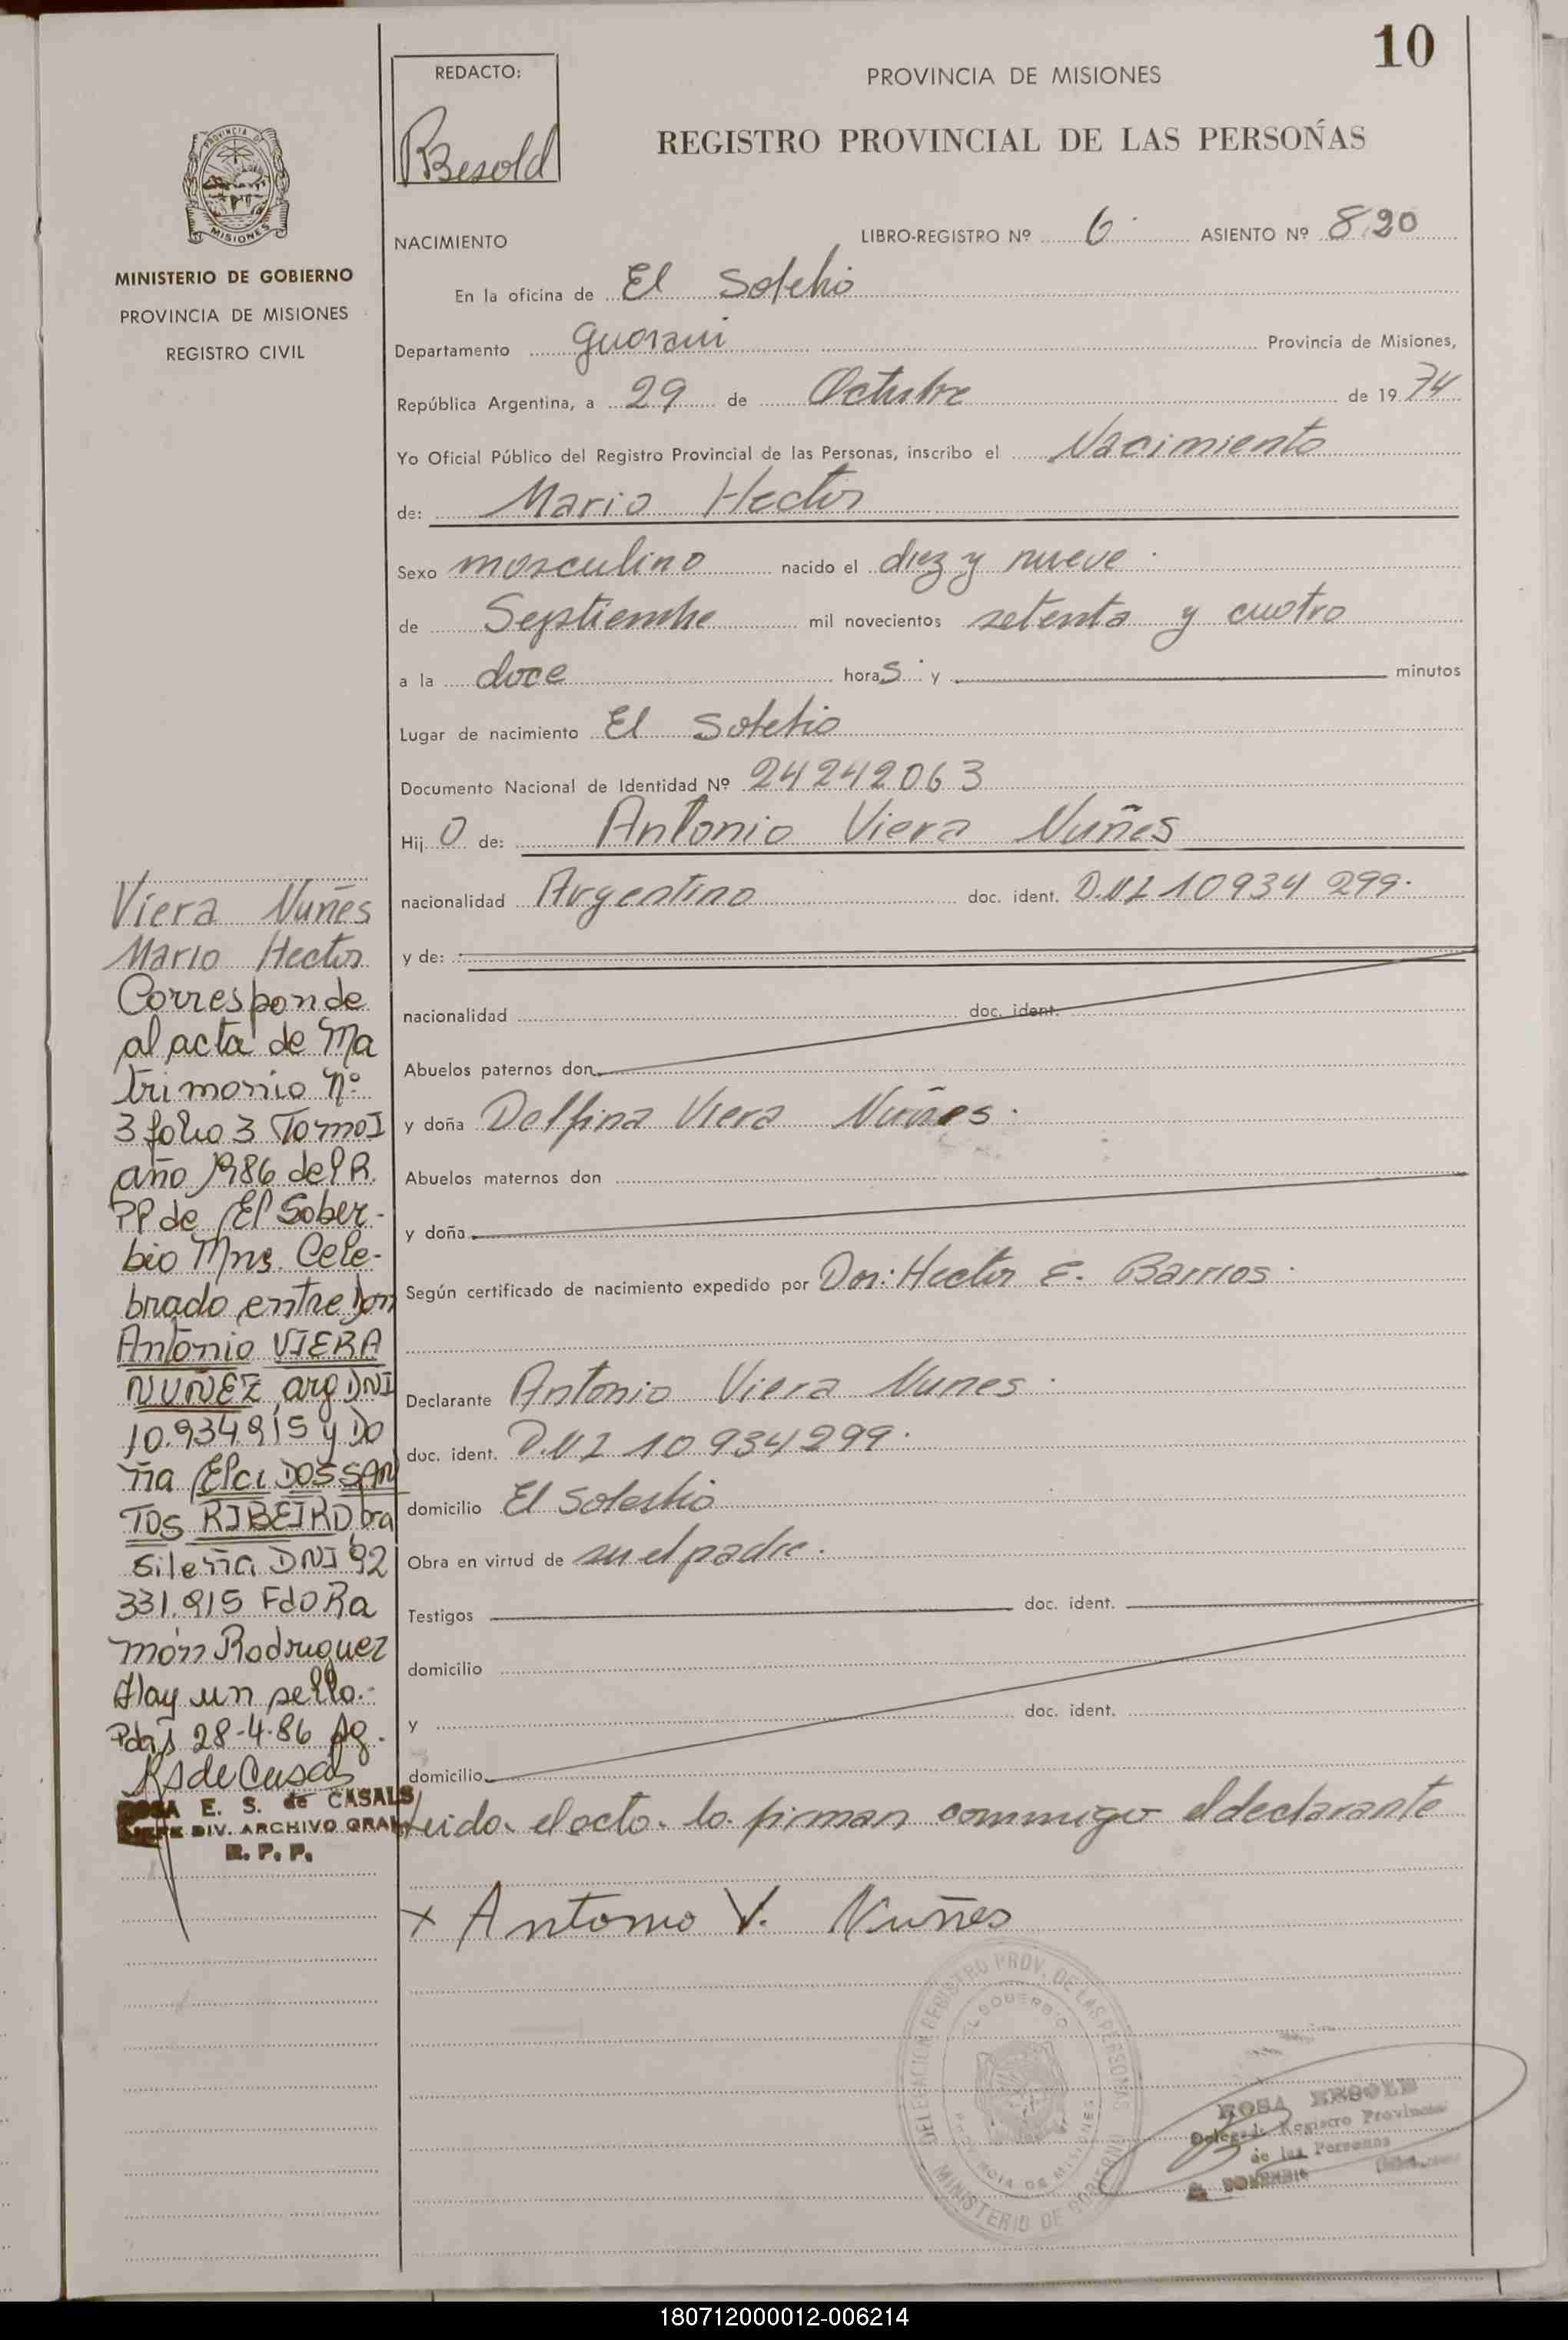 10
REDACTO:
Besold
PROVINCIA DE MISIONES
REGISTRO PROVINCIAL DE LAS PERSONAS
PROVINCIA DE
MISIONES
MINISTERIO DE GOBIERNO
PROVINCIA DE MISIONES
REGISTRO CIVIL
NACIMIENTO
LIBRO-REGISTRO Nº 6 ASIENTO Nº 820
En la oficina de El Soberbio
Departamento Guarani Provincia de Misiones,
República Argentina, a 29 de Octubre de 1974
Yo Oficial Público del Registro Provincial de las Personas, inscribo el Nacimiento
de: Mario Hector
Sexo masculino nacido el diez y nueve
de Septiembre mil novecientos setenta y cuatro
a la doce horas y minutos
Lugar de nacimiento El Soberbio
Documento Nacional de Identidad Nº 24242063
Hijo de: Antonio Viera Nuñes
nacionalidad Argentino doc. ident. D.N.I 10934299.
y de:
nacionalidad doc. ident.
Abuelos paternos don
y doña Delfina Viera Nuñes.
Abuelos maternos don
y doña
Según certificado de nacimiento expedido por Don: Hector E. Barrios
Declarante Antonio Viera Nunes
doc. ident. D.N.I 10934299.
domicilio El Soberbio
Obra en virtud de su el padre.
Testigos doc. ident.
domicilio
y doc. ident.
domicilio
Leida el acta la firman conmigo el declarante
x Antonio V. Nuñes
Viera Nuñes
Mario Hector
Corresponde
al acta de Ma
trimonio Nº
3 folio 3 Tomo I
año 1986 del R.
PP de El Sober-
bio Mns. Cele-
brado entre Don
Antonio VIERA
NUÑEZ arg DNI
10.934.915 y Do
ña Elci DOS SAN
TOS RIBEIRO bra
sileña DNI 92
331.915 Fdo Ra
món Rodriguez
Hay un sello.-
Pdas 28-4-86 Ag.
RSdeCasals
ROSA E. S. de CASALS
JEFE DIV. ARCHIVO GRAL
R. P. P.
DELEGACION REGISTRO PROV. DE LAS PERSONAS
EL SOBERBIO
PROVINCIA DE MISIONES
MINISTERIO DE GOBIERNO
ROSA BESOLD
Delegada Registro Provincial
de las Personas
EL SOBERBIO
180712000012-006214